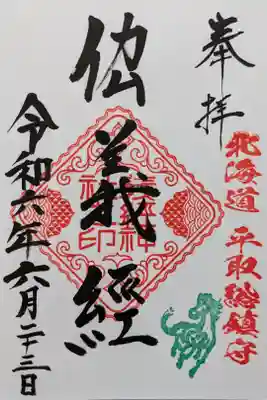 奉拝
北海道 平取総鎮守
義経
令和六年六月二十三日